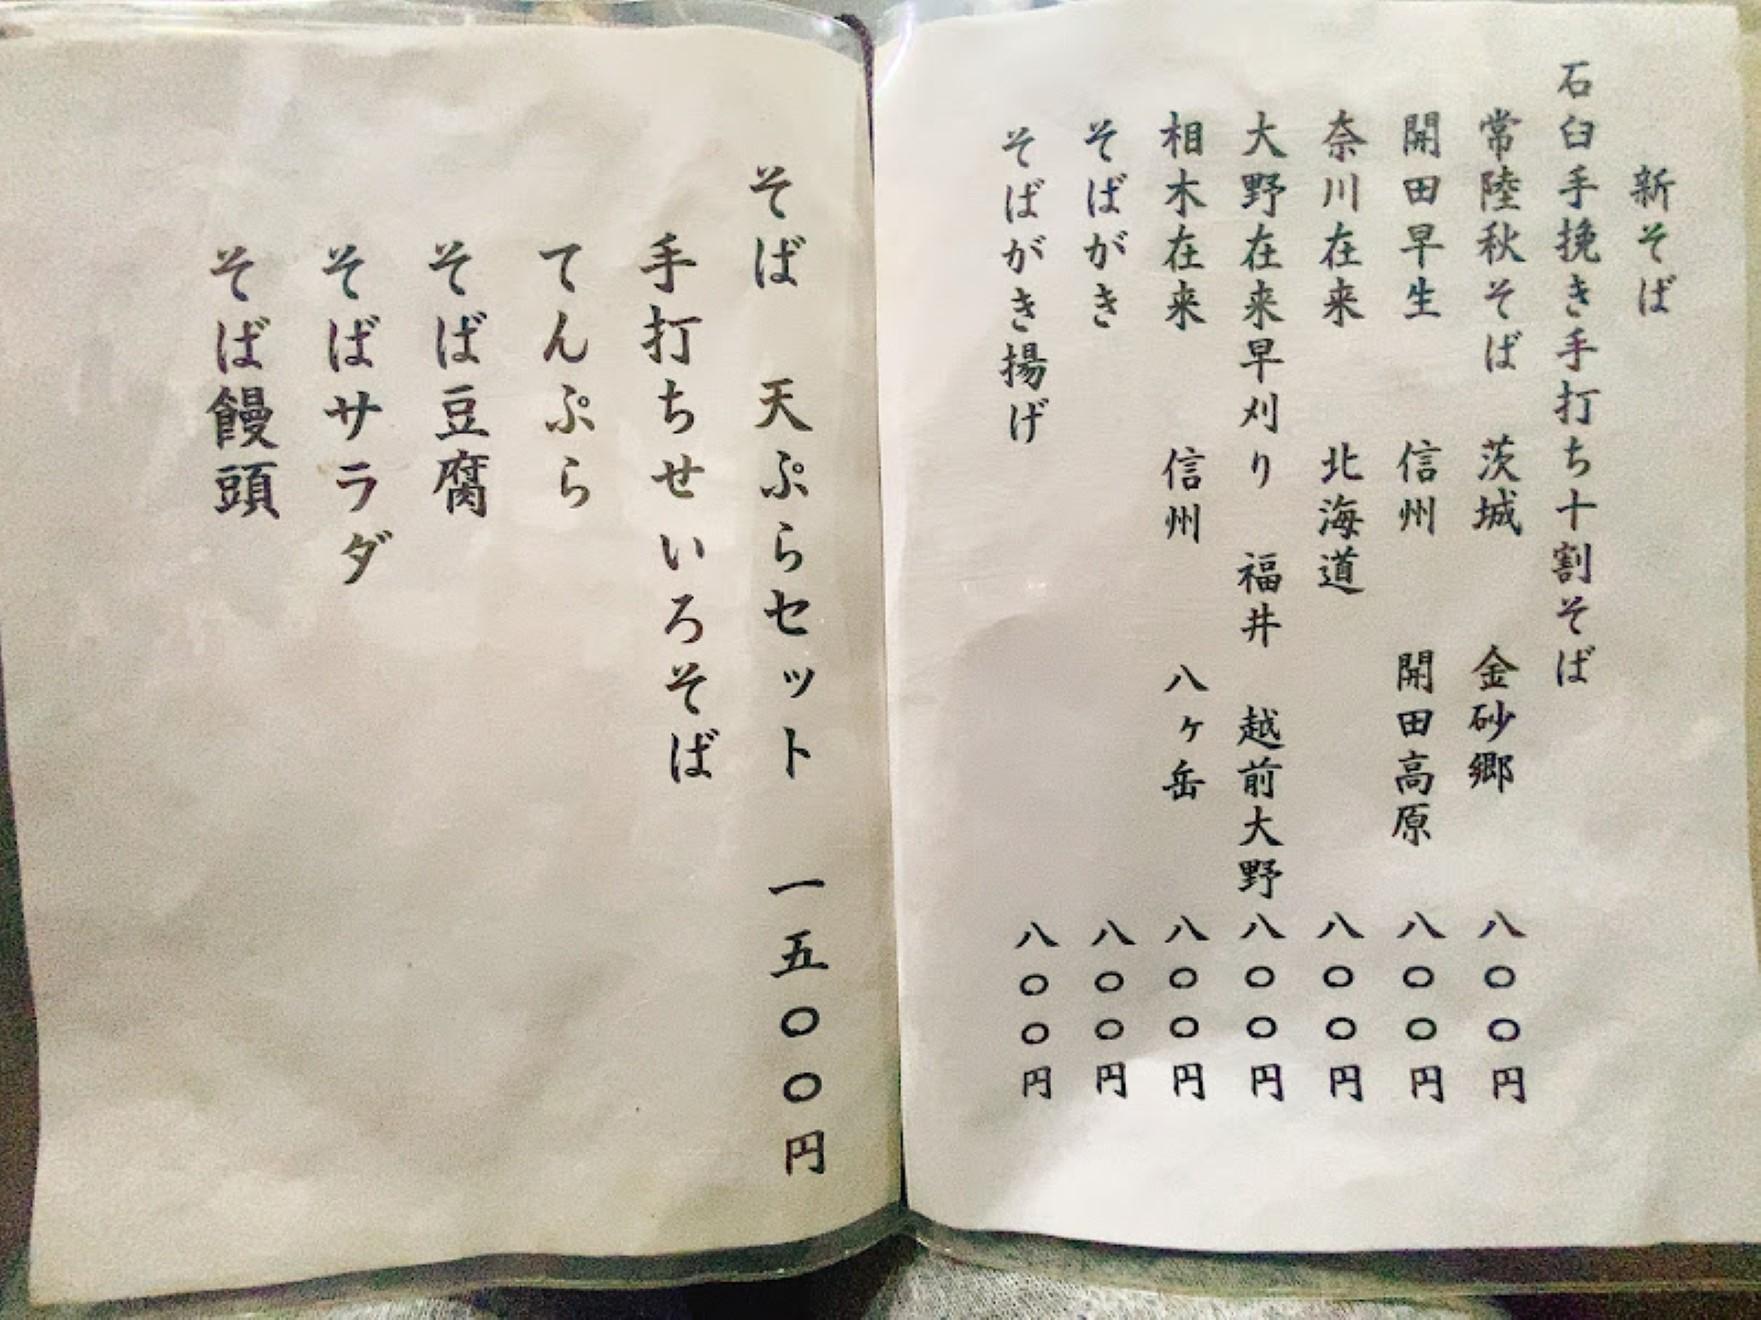 新そば
石臼手挽き手打ち十割そば
常陸秋そば 茨城 金砂郷 八〇〇円
開田早生 信州 開田高原 八〇〇円
奈川在来 北海道 八〇〇円
大野在来早刈り 福井 越前大野 八〇〇円
相木在来 信州 八ヶ岳 八〇〇円
そばがき 八〇〇円
そばがき揚げ 八〇〇円
そば 天ぷらセット 一五〇〇円
手打ちせいろそば
てんぷら
そば豆腐
そばサラダ
そば饅頭